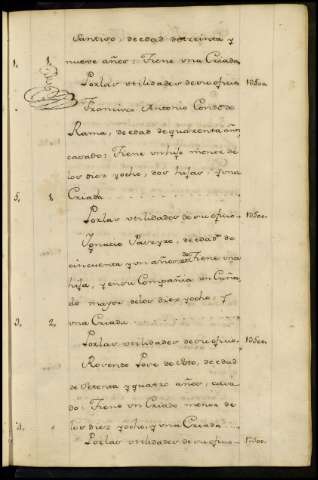 Santiso, de edad de treinta y
1, 1 nueve años; Tiene una Criada
Por las utilidades de su oficio 1050..
Francisco Antonio Conde de
Rama, de edad de quarenta años
casado; Tiene un hijo menor de
los diez yocho, dos hijas, y una
5, 1 Criada
Por las utilidades de su oficio 1050..
Ygnacio de edad de
cincuenta y un años; Tiene una
hija, y en su Compañia un Cuña
do mayor de los diez yocho, y
3, 2 una Criada
Por las utilidades de su oficio 1050..
Rosendo de Soto, de edad
de setenta y quatro años, casa
do; Tiene un Criado menor de
los diez yocho, y una Criada
Por las utilidades de su oficio